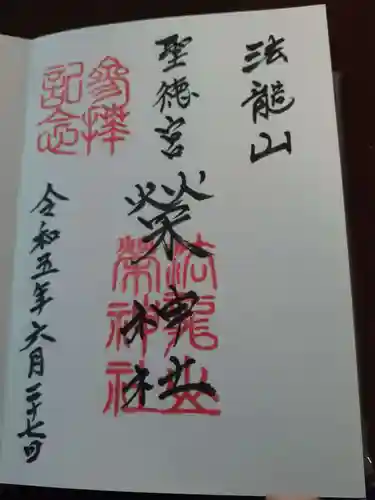 法龍山
聖徳宮
榮神社
令和五年六月二十七日
参拝
記念
法龍山
榮神社